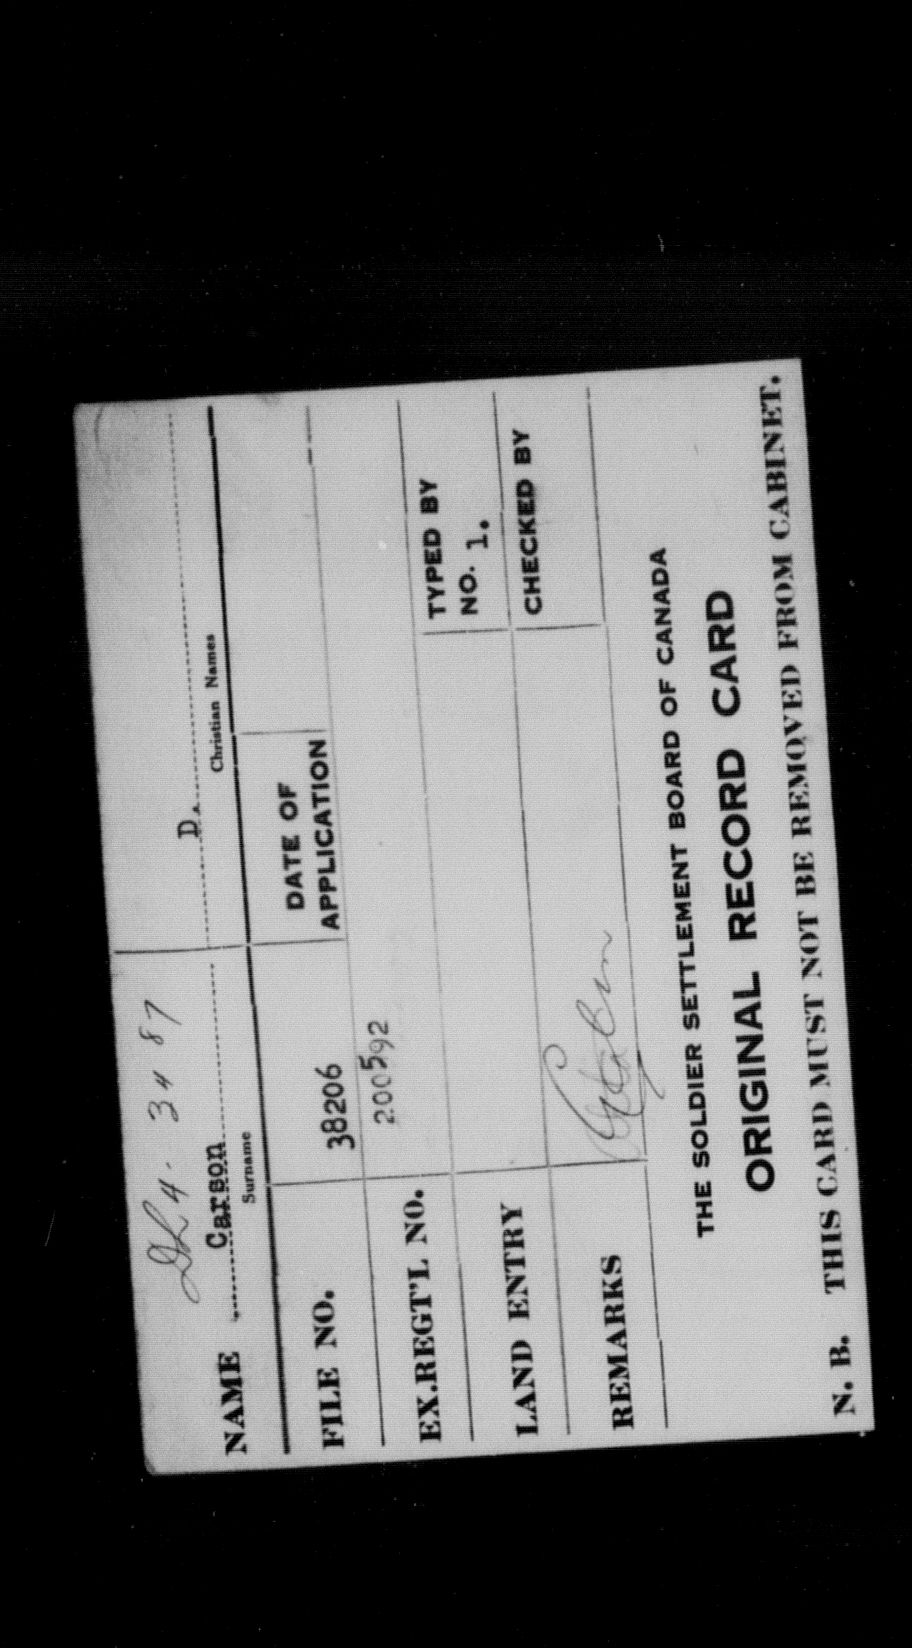 DL 4. 3487
NAME Carson D.
Surname Christian Names
FILE NO. 38206 DATE OF APPLICATION
EX.REGT'L NO. 200592
LAND ENTRY TYPED BY NO. 1.
REMARKS CHECKED BY
THE SOLDIER SETTLEMENT BOARD OF CANADA
ORIGINAL RECORD CARD
N. B. THIS CARD MUST NOT BE REMOVED FROM CABINET.